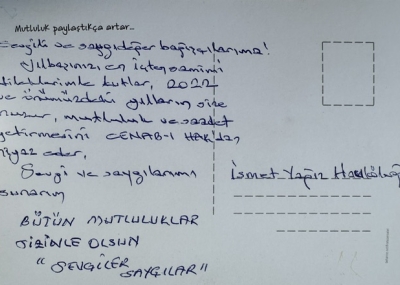 Mutluluk paylaştıkça artar...
Sevgili ve saygıdeğer bağışçılarıma!
Yılbaşınızı en içten samimi
dileklerimle kutlar, 2022
ve önümüzdeki yılların size
huzur, mutluluk ve saadet
getirmesini CENAB-I HAK'dan
niyaz eder,
Sevgi ve saygılarımı
sunarım
BÜTÜN MUTLULUKLAR
SİZİNLE OLSUN
"SEVGİLER
SAYGILAR"
İsmet Yağız